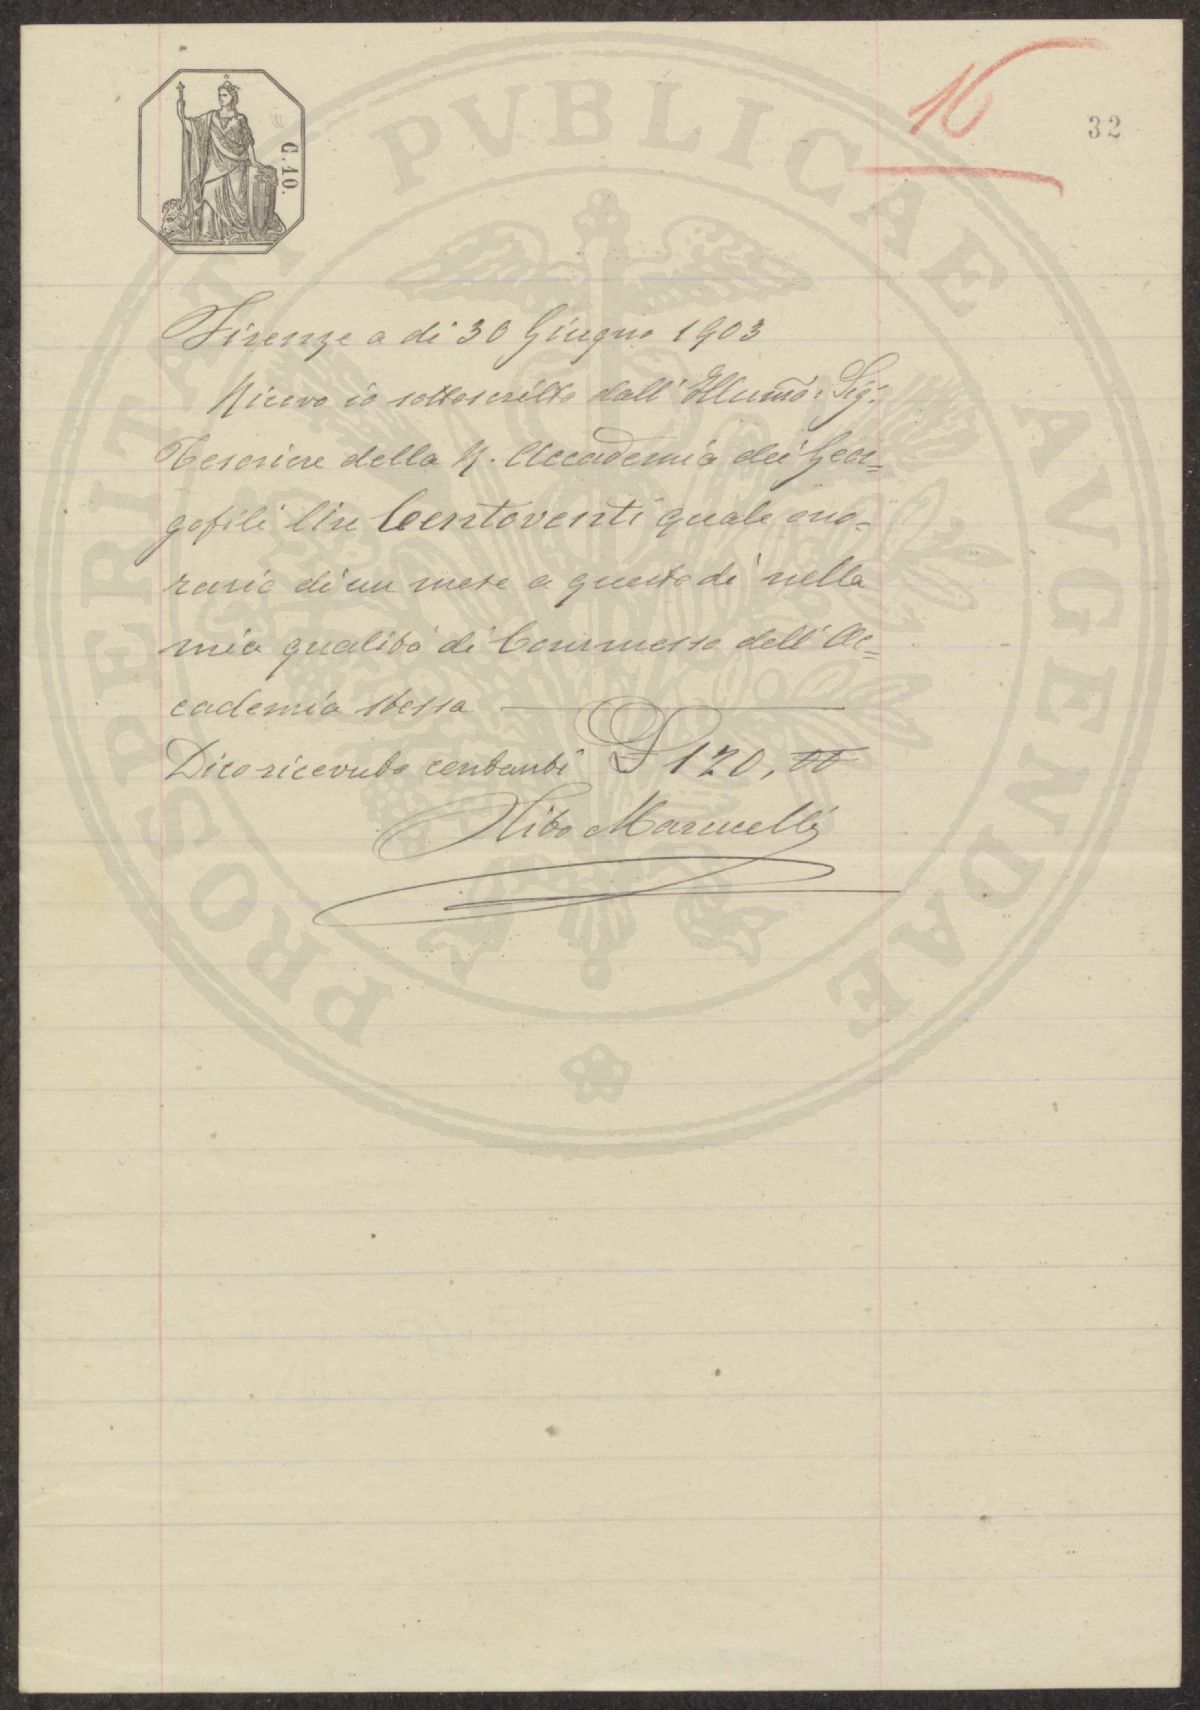 16
32
C. 10.
PROSPERITATI PVBLICAE AVGENDAE
Firenze a di 30 Giugno 1903
Ricevo io sottoscritto dall' Illumõ: Sig.
Tesoriere della R. Accademia dei Geor=
gofili lire Centoventi quale ono=
rario di un mese a questo dì nella
mia qualità di Commesso dell' Ac=
cademia stessa
Dico ricevuto contanti £ 120, 00
Tito Marucelli